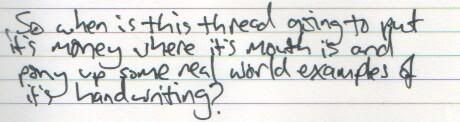 So when is this thread going to put
it's money where it's mouth is and
pony up some real world examples of
it's handwriting?